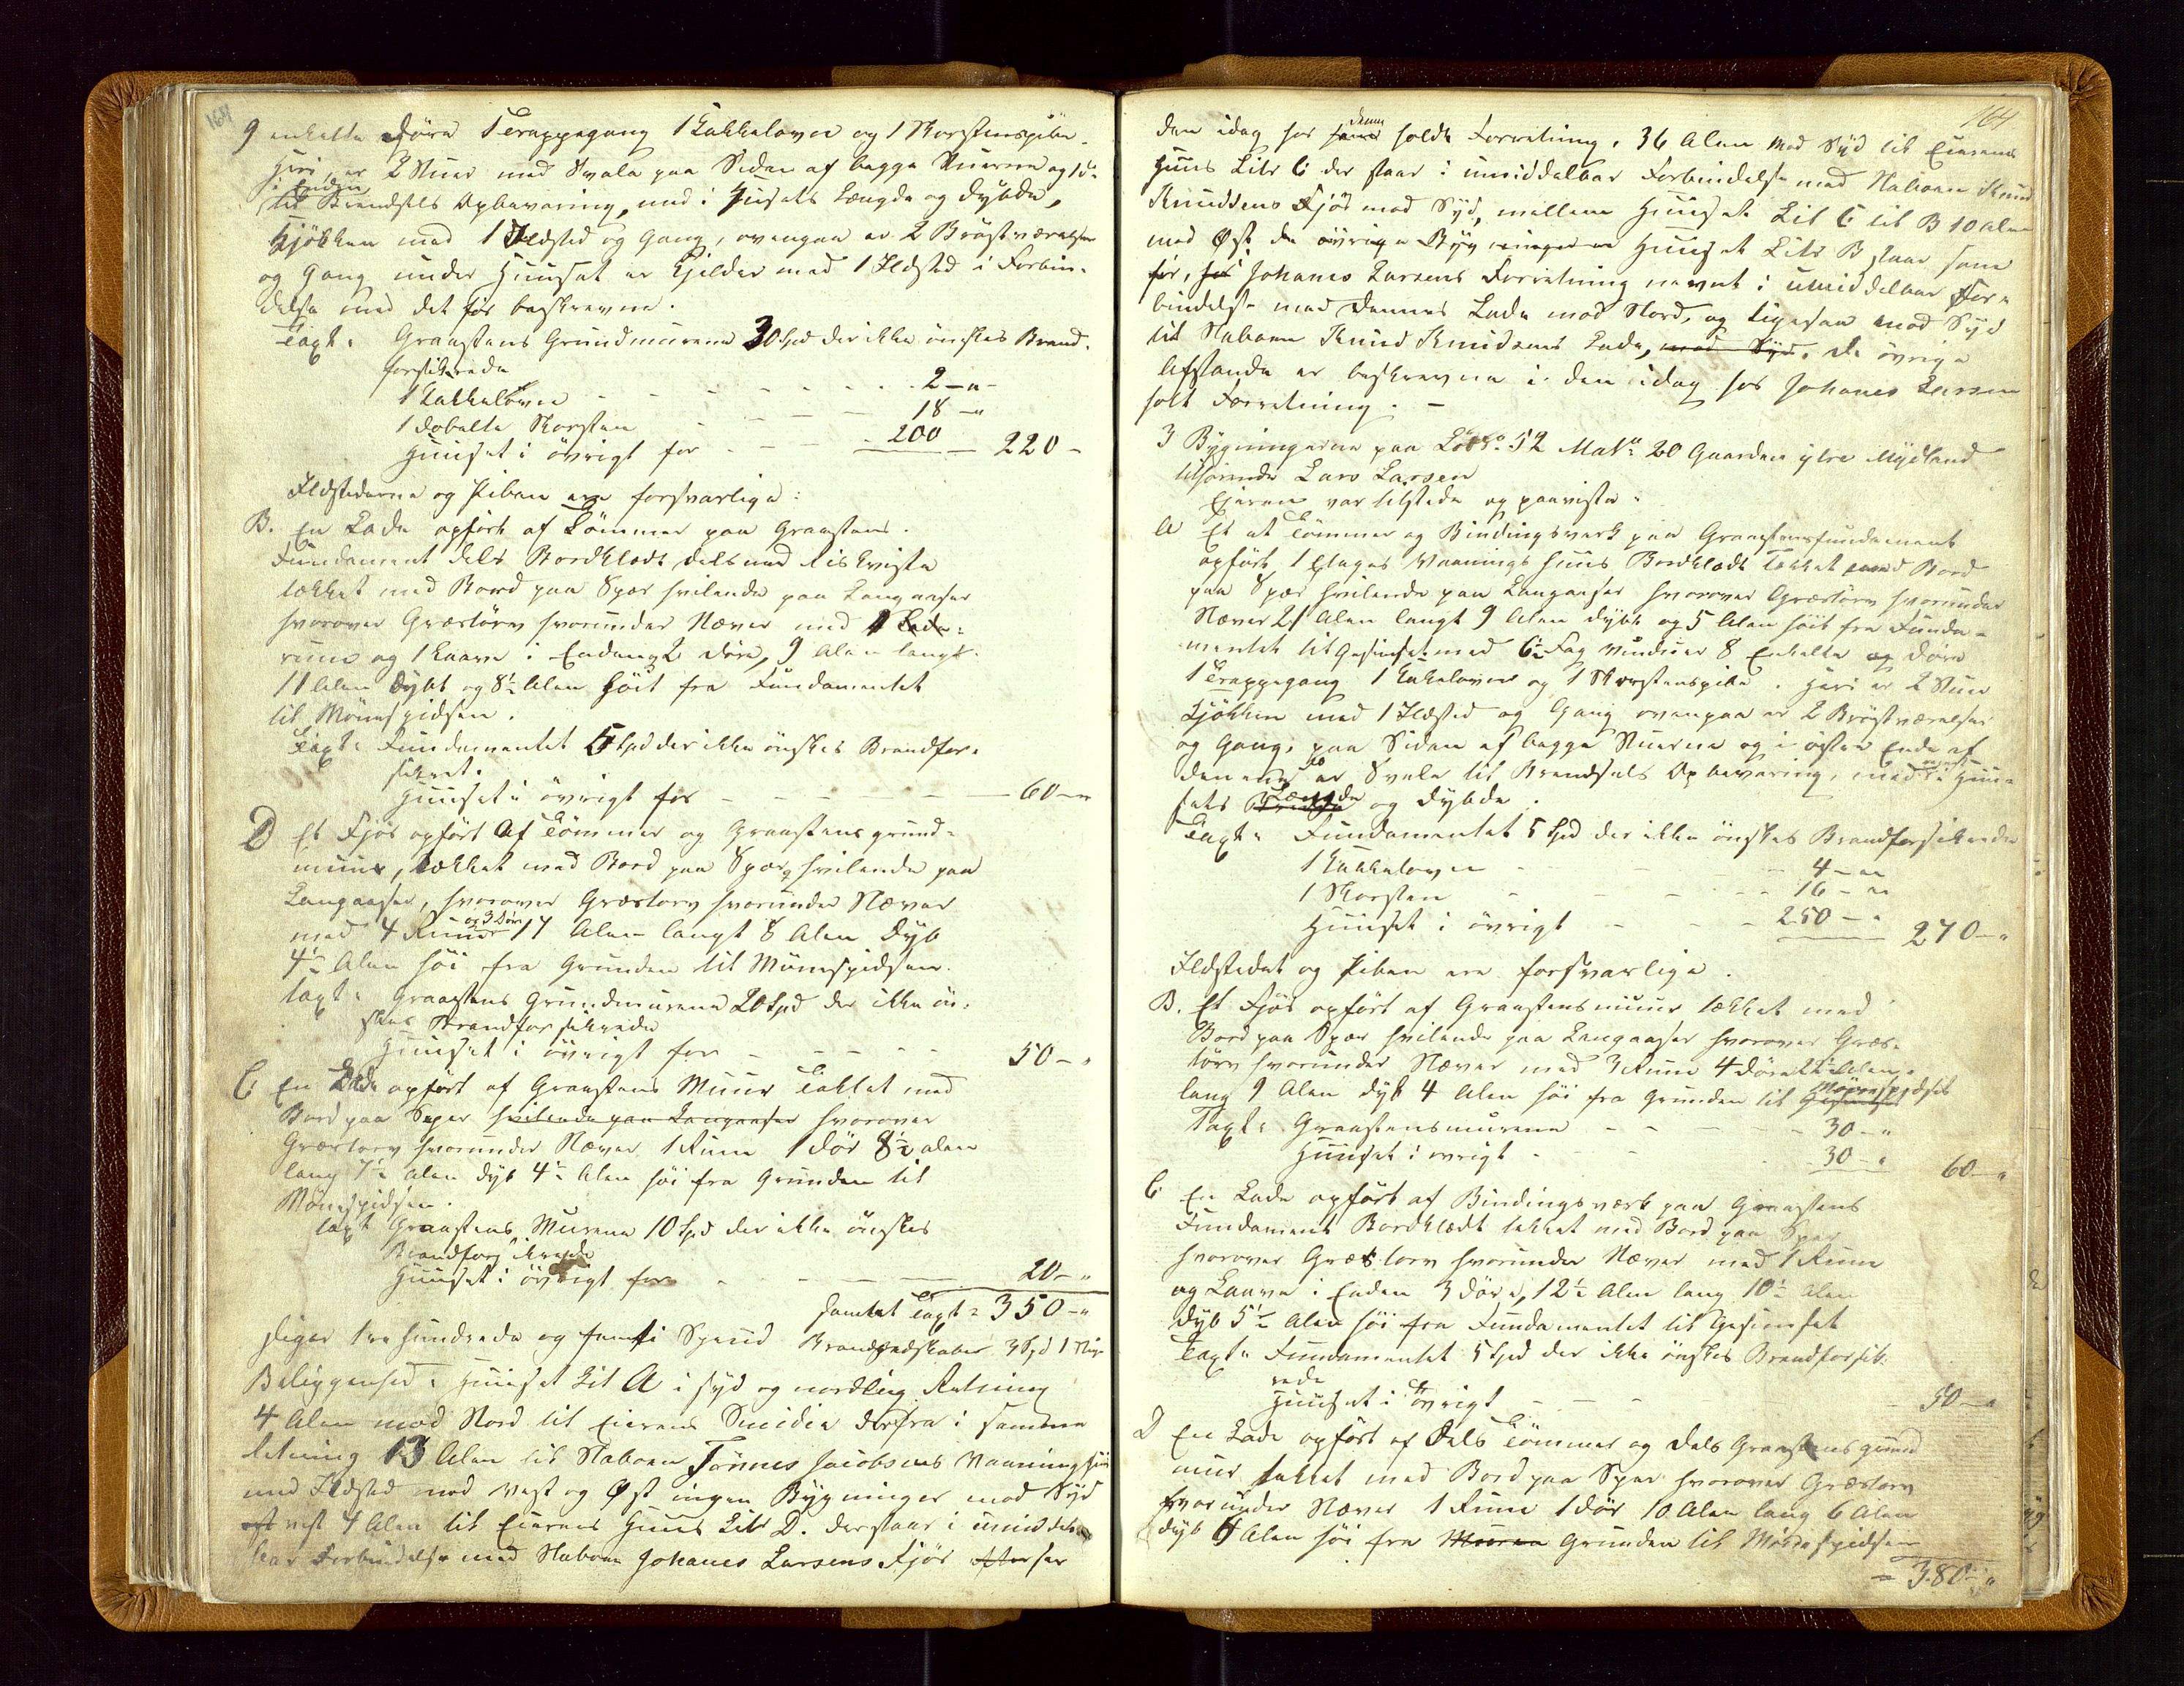 164
9 enkelte Döre 1 Trappegang 1 Kakkelovn og 1 Skorstenspibe.
Heri er 2 Stuer med Svale paa Siden af begge Stuerne og
i Enden
til Brendsels Opbevaring, med i Husets Længde og Dybde,
Kjökken med 1 Ildsted og Gang, ovenpaa er 2 Bröstværelser
og Gang under Huuset er Kjelder med 1 Ildsted i Forbin-
delse med det för beskrevne.
Taxt: Graastens Grundmurene 30 Spd der ikke önskes Brand-
forsikrede
1 Kakkelovn - - - 2 - "
1 dobelte Skorsten - - - 18 - "
Huuset i övrigt for - - - 200 - 220 -
Ildstederne og Piben ere forsvarlige:
B. En Lade opfört af Tömmer paa Graastens
Fundament dels Bordklædt dels med Riskviste
tækket med Bord paa Spær hvilende paa Langaaser
hvorover Græstörv hvorunder Næver med 1 Lade-
rum og 1 Laave i Enden, 2 Döre, 9 Alen langt
11 Alen Dybt og 8½ Alen höit fra Fundamentet
til Mönnspidsen.
Taxt: Fundamentet 5 Spd der ikke önskes Brandfor-
sikret.
Huuset i övrigt for - - - 60 - "
D Et Fjös opfört af Tömmer og Graastens grund-
muur, tækket med Bord paa Spær, hvilende paa
Langaaser, hvorover Græstorv hvorunder Næver
og 3 Dör
med 4 Rum 17 Alen langt 8 Alen dyb
4½ Alen höi fra Grunden til Mönnspidsen.
Taxt: Graastens Grundmurene 20 Spd der ikke ön-
skes Brandforsikrede
Huuset i övrigt for - - - 50 - "
C En Lade opfört af Graastens Muur Tækket med
Bord paa Sper hvilende paa Langaaser hvorover
Græstorv hvorunder Næver 1 Rum 1 Dör 8½ alen
lang 7½ Alen dyb 4½ Alen höi fra Grunden til
Mönnspidsen.
Taxt Graastens Murene 10 Spd der ikke önskes
Brandforsikrede
Huuset i övrigt for - - - 20 - "
Samlet Taxt = 350 - "
siger tre hundrede og femti Specd Brandredskaber 3 Spd 1
Beliggenhed: Huuset Lit A i syd og nordlig Retning
4 Alen mod Nord til Eierens Smidie derfra i samme
Retning 13 Alen til Naboen Tönnes Jacobsens Vaaningshus
med Ildsted mod Vest og Öst ingen Bygninger mod Syd
ost vest 4 Alen til Eierens Huus Litr D. der staar i umiddel-
bar Forbindelse med Naboen Johanes Larsens Fjös
164
denne
den idag hos holdte Forretning. 36 Alen mod Syd til Eierens
Huus Litr C der staar i umiddelbar Forbindelse med Naboen Knud
Knudsens Fjös mod Syd, mellem Huuset Lit C til B 10 alen
mod Öst, de övrige Huuset Litr B staar som
för, Johanes Larsens Forretning nevnt i umiddelbar For-
bindelse med dennes Lade mod Nord, og ligesaa mod Syd
til Naboen Knud Knudsens Lade, mod Syd. De övrige
Afstande er beskrevne i den idag hos Johanes Larsen
holt Forretning. -
3 Bygningerne paa Löb No 52 Mat No 20 Gaarden ytre Mydland
tilhörende Lars Larsen
Ejeren var tilstede og paaviste:
A Et af Tömmer og Bindingsverk paa Graastensfundament
opfört 1 Etages Vaaningshuus Bordklædt Tækket med Bord
paa Spær hvilende paa Langaaser hvorover Græstörv hvorunder
Næver 21 Alen langt 9 Alen dybt og 5 Alen höit fra Funda-
mentet til Gesimset med 6½ Fag Vinduer 8 Enkelte og Döre
1 Trappegang 1 Kakelovn og 1 Skorstenspibe. Heri er 2 Stuer
Kjökken med 1 Ildsted og Gang ovenpaa er 2 Bröstværelser
og Gang, paa Siden af begge Stuerne og i östre Ende af
den ene er Svale til Brendsels Opbevaring, med i Huu-
Længde
sets og Dybde.
Taxt: Fundamentet 5 Spd der ikke önskes Brandforsikrede
1 Kakkelovn - - - 4 - "
1 Skorsten - - - 16 - "
Huuset i övrigt - - - 250 - " 270 - "
Ildstedet og Piben ere forsvarlige.
B. Et Fjös opfört af Graastensmuur tækket med
Bord paa Spær hvilende paa Langaaser hvorover Græs-
törv hvorunder Næver med 3 Rum 4 Döre Alen
lang 9 Alen dyb 4 Alen höi fra Grunden til Gesimset Mönespidsen
Taxt: Graastensmurene - - - 30 - "
Huuset i övrigt - - - 30 - " 60 - "
C En Lade opfört af Bindingsværk paa Graastens
Fundament Bordklædt tekket med Bord paa Sper
hvorover Græstorv hvorunder Næver med 1 Rum
og Laave i Enden 3 Döre, 12½ Alen lang 10½ Alen
Dyb 5½ Alen höi fra Fundamentet til Gesimset
Taxt: Fundamentet 5 Spd der ikke önskes Brandforsik-
rede
Huuset i övrigt - - - 50 - "
D En Lade opfört af Dels Tömmer og dels Graastens grund
muur tekket med Bord paa Sper hvorover Græstorv
hvorunder Næver 1 Rum 1 Dör 10 Alen lang 6 Alen
Dyb 4 Alen höi fra Muren Grunden til Mönespidsen
= 380 - "